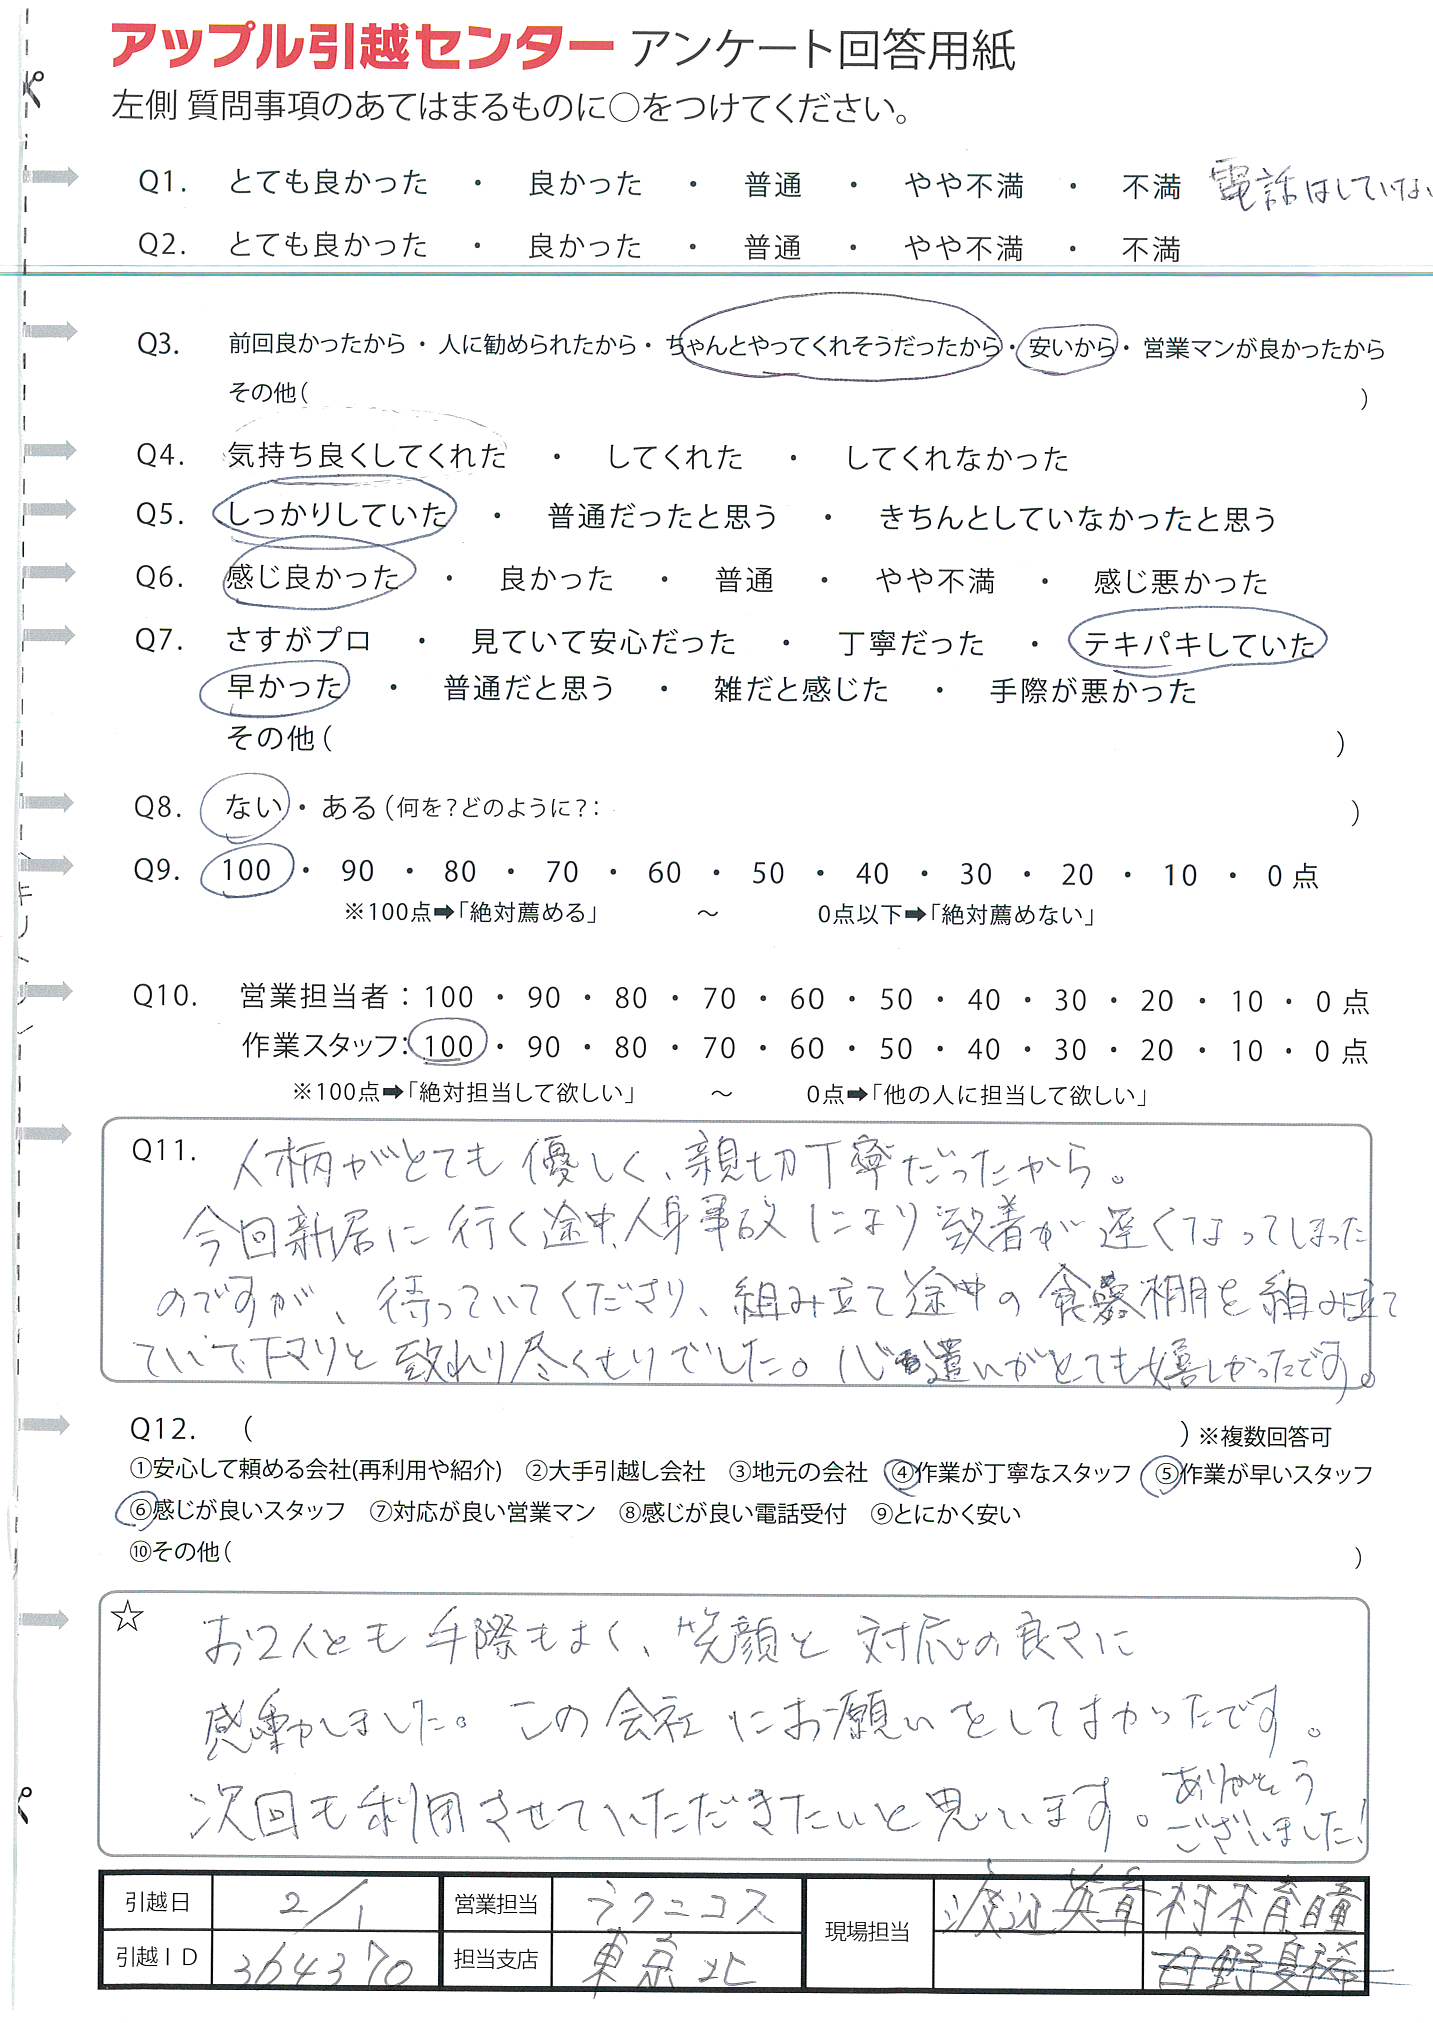 アップル引越センター アンケート回答用紙
左側 質問事項のあてはまるものに○をつけてください。
Q1. とても良かった ・ 良かった ・ 普通 ・ やや不満 ・ 不満 電話はしていない
Q2. とても良かった ・ 良かった ・ 普通 ・ やや不満 ・ 不満
Q3. 前回良かったから・人に勧められたから・ちゃんとやってくれそうだったから・安いから・営業マンが良かったから
その他( )
Q4. 気持ち良くしてくれた ・ してくれた ・ してくれなかった
Q5. しっかりしていた ・ 普通だったと思う ・ きちんとしていなかったと思う
Q6. 感じ良かった ・ 良かった ・ 普通 ・ やや不満 ・ 感じ悪かった
Q7. さすがプロ ・ 見ていて安心だった ・ 丁寧だった ・ テキパキしていた
早かった ・ 普通だと思う ・ 雑だと感じた ・ 手際が悪かった
その他( )
Q8. ない・ある(何を?どのように?: )
Q9. 100 ・ 90 ・ 80 ・ 70 ・ 60 ・ 50 ・ 40 ・ 30 ・ 20 ・ 10 ・ 0点
※100点➡「絶対薦める」 ～ 0点以下➡「絶対薦めない」
キリトリ
Q10. 営業担当者:100 ・ 90 ・ 80 ・ 70 ・ 60 ・ 50 ・ 40 ・ 30 ・ 20 ・ 10 ・ 0点
作業スタッフ:100 ・ 90 ・ 80 ・ 70 ・ 60 ・ 50 ・ 40 ・ 30 ・ 20 ・ 10 ・ 0点
※100点➡「絶対担当して欲しい」 ～ 0点➡「他の人に担当して欲しい」
Q11. 人柄がとても優しく、親切丁寧だったから。
今回新居に行く途中、人身事故により到着が遅くなってしまった
のですが、待っていてくださり、組み立て途中の食器棚を組み立て
ていて下さりと至れり尽くせりでした。心遣いがとても嬉しかったです。
Q12. ( )※複数回答可
①安心して頼める会社(再利用や紹介) ②大手引越し会社 ③地元の会社 ④作業が丁寧なスタッフ ⑤作業が早いスタッフ
⑥感じが良いスタッフ ⑦対応が良い営業マン ⑧感じが良い電話受付 ⑨とにかく安い
⑩その他( )
☆ お2人とも手際もよく、笑顔と対応の良さに
感動しました。この会社にお願いをしてよかったです。
次回も利用させていただきたいと思います。ありがとう
ございました!
引越日 2/1 営業担当 ラクニコス 現場担当 渡辺英章 村本育瞳
引越ID 364370 担当支店 東京北 日野夏稀